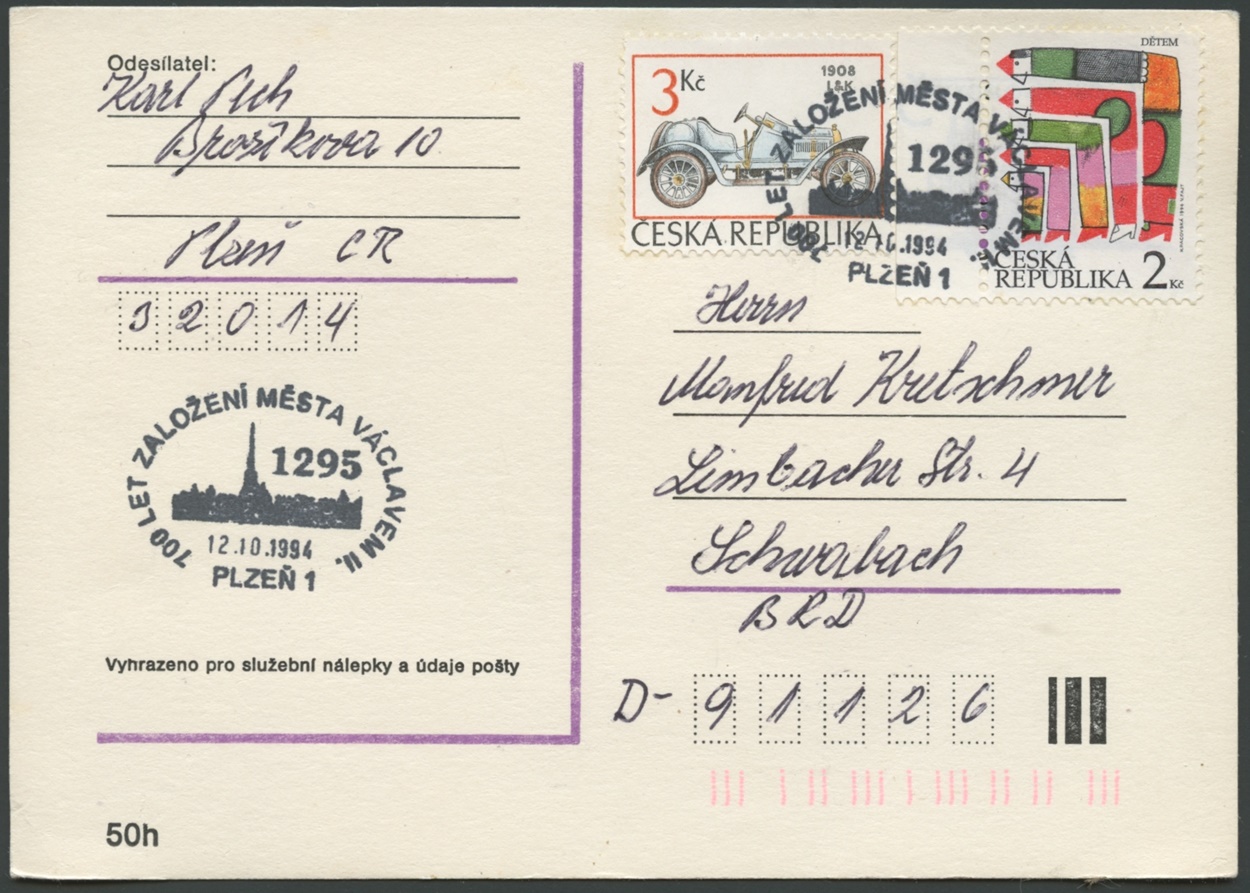 Odesílatel:
Karl Pech
Brožíkova 10
Plzeň ČR
32014
700 LET ZALOŽENÍ MĚSTA VÁCLAVEM II.
1295
12.10.1994
PLZEŇ 1
Vyhrazeno pro služební nálepky a údaje pošty
50h
3 Kč
1908
L&K
ČESKÁ REPUBLIKA
DĚTEM
ČESKÁ
REPUBLIKA 2 Kč
700 LET ZALOŽENÍ MĚSTA VÁCLAVEM II.
1295
12.10.1994
PLZEŇ 1
Herrn
Manfred Kretschmer
Limbacher Str. 4
Schwabach
BRD
D-91126